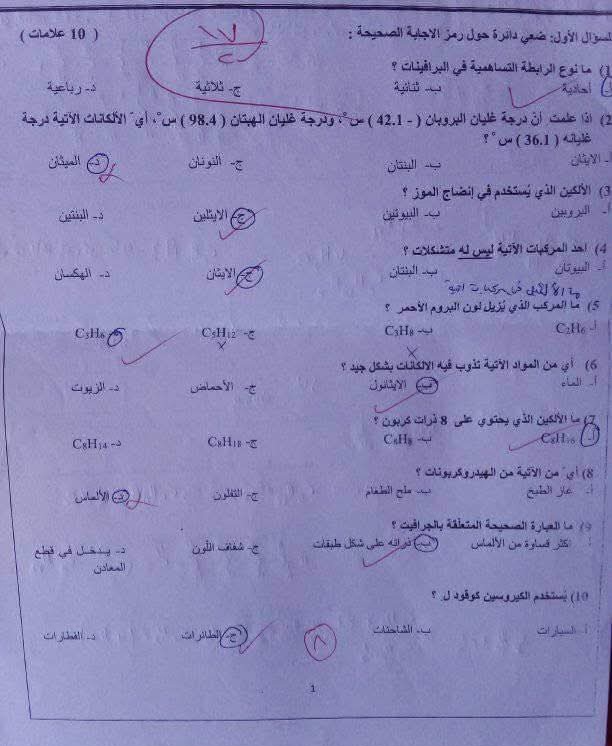 السؤال الأول: ضعي دائرة حول رمز الاجابة الصحيحة : ( 10 علامات )
١٧
1) ما نوع الرابطة التساهمية في البرافينات ؟
أ- أحادية ب- ثنائية ج- ثلاثية د- رباعية
2) اذا علمت أنّ درجة غليان البروبان ( - 42.1 ) س°، ودرجة غليان الهبتان ( 98.4 ) س°، أي ّ الألكانات الآتية درجة
غليانه ( 36.1 ) س° ؟
أ- الايثان ب- البنتان ج- النونان د- الميثان
3) الألكين الذي يُستخدم في إنضاج الموز ؟
أ- البروبين ب- البيوتين ج- الايثلين د- البنتين
4) احد المركبات الآتية ليس له متشكلات ؟
أ- البيوتان ب- البنتان ج- الايثان د- الهكسان
5) ما المركب الذي يُزيل لون البروم الأحمر ؟
أ- C2H6 ب- C3H8 ج- C5H12 د- C3H6
6) أي من المواد الآتية تذوب فيه الالكانات بشكل جيد ؟
أ- الماء ب- الايثانول ج- الأحماض د- الزيوت
7) ما الألكين الذي يحتوي على 8 ذرات كربون ؟
أ- C8H16 ب- C8H8 ج- C8H18 د- C8H14
8) أي ّ من الآتية من الهيدروكربونات ؟
أ- غاز الطبخ ب- ملح الطعام ج- التفلون د- الألماس
9) ما العبارة الصحيحة المتعلّقة بالجرافيت ؟
أ- اكثر قساوة من الألماس ب- ذراته على شكل طبقات ج- شفاف اللّون د- يدخل في قطع
المعادن
10) يُستخدم الكيروسين كوقود ل ؟
أ- السيارات ب- الشاحنات ج- الطائرات د- القطارات
٨
1